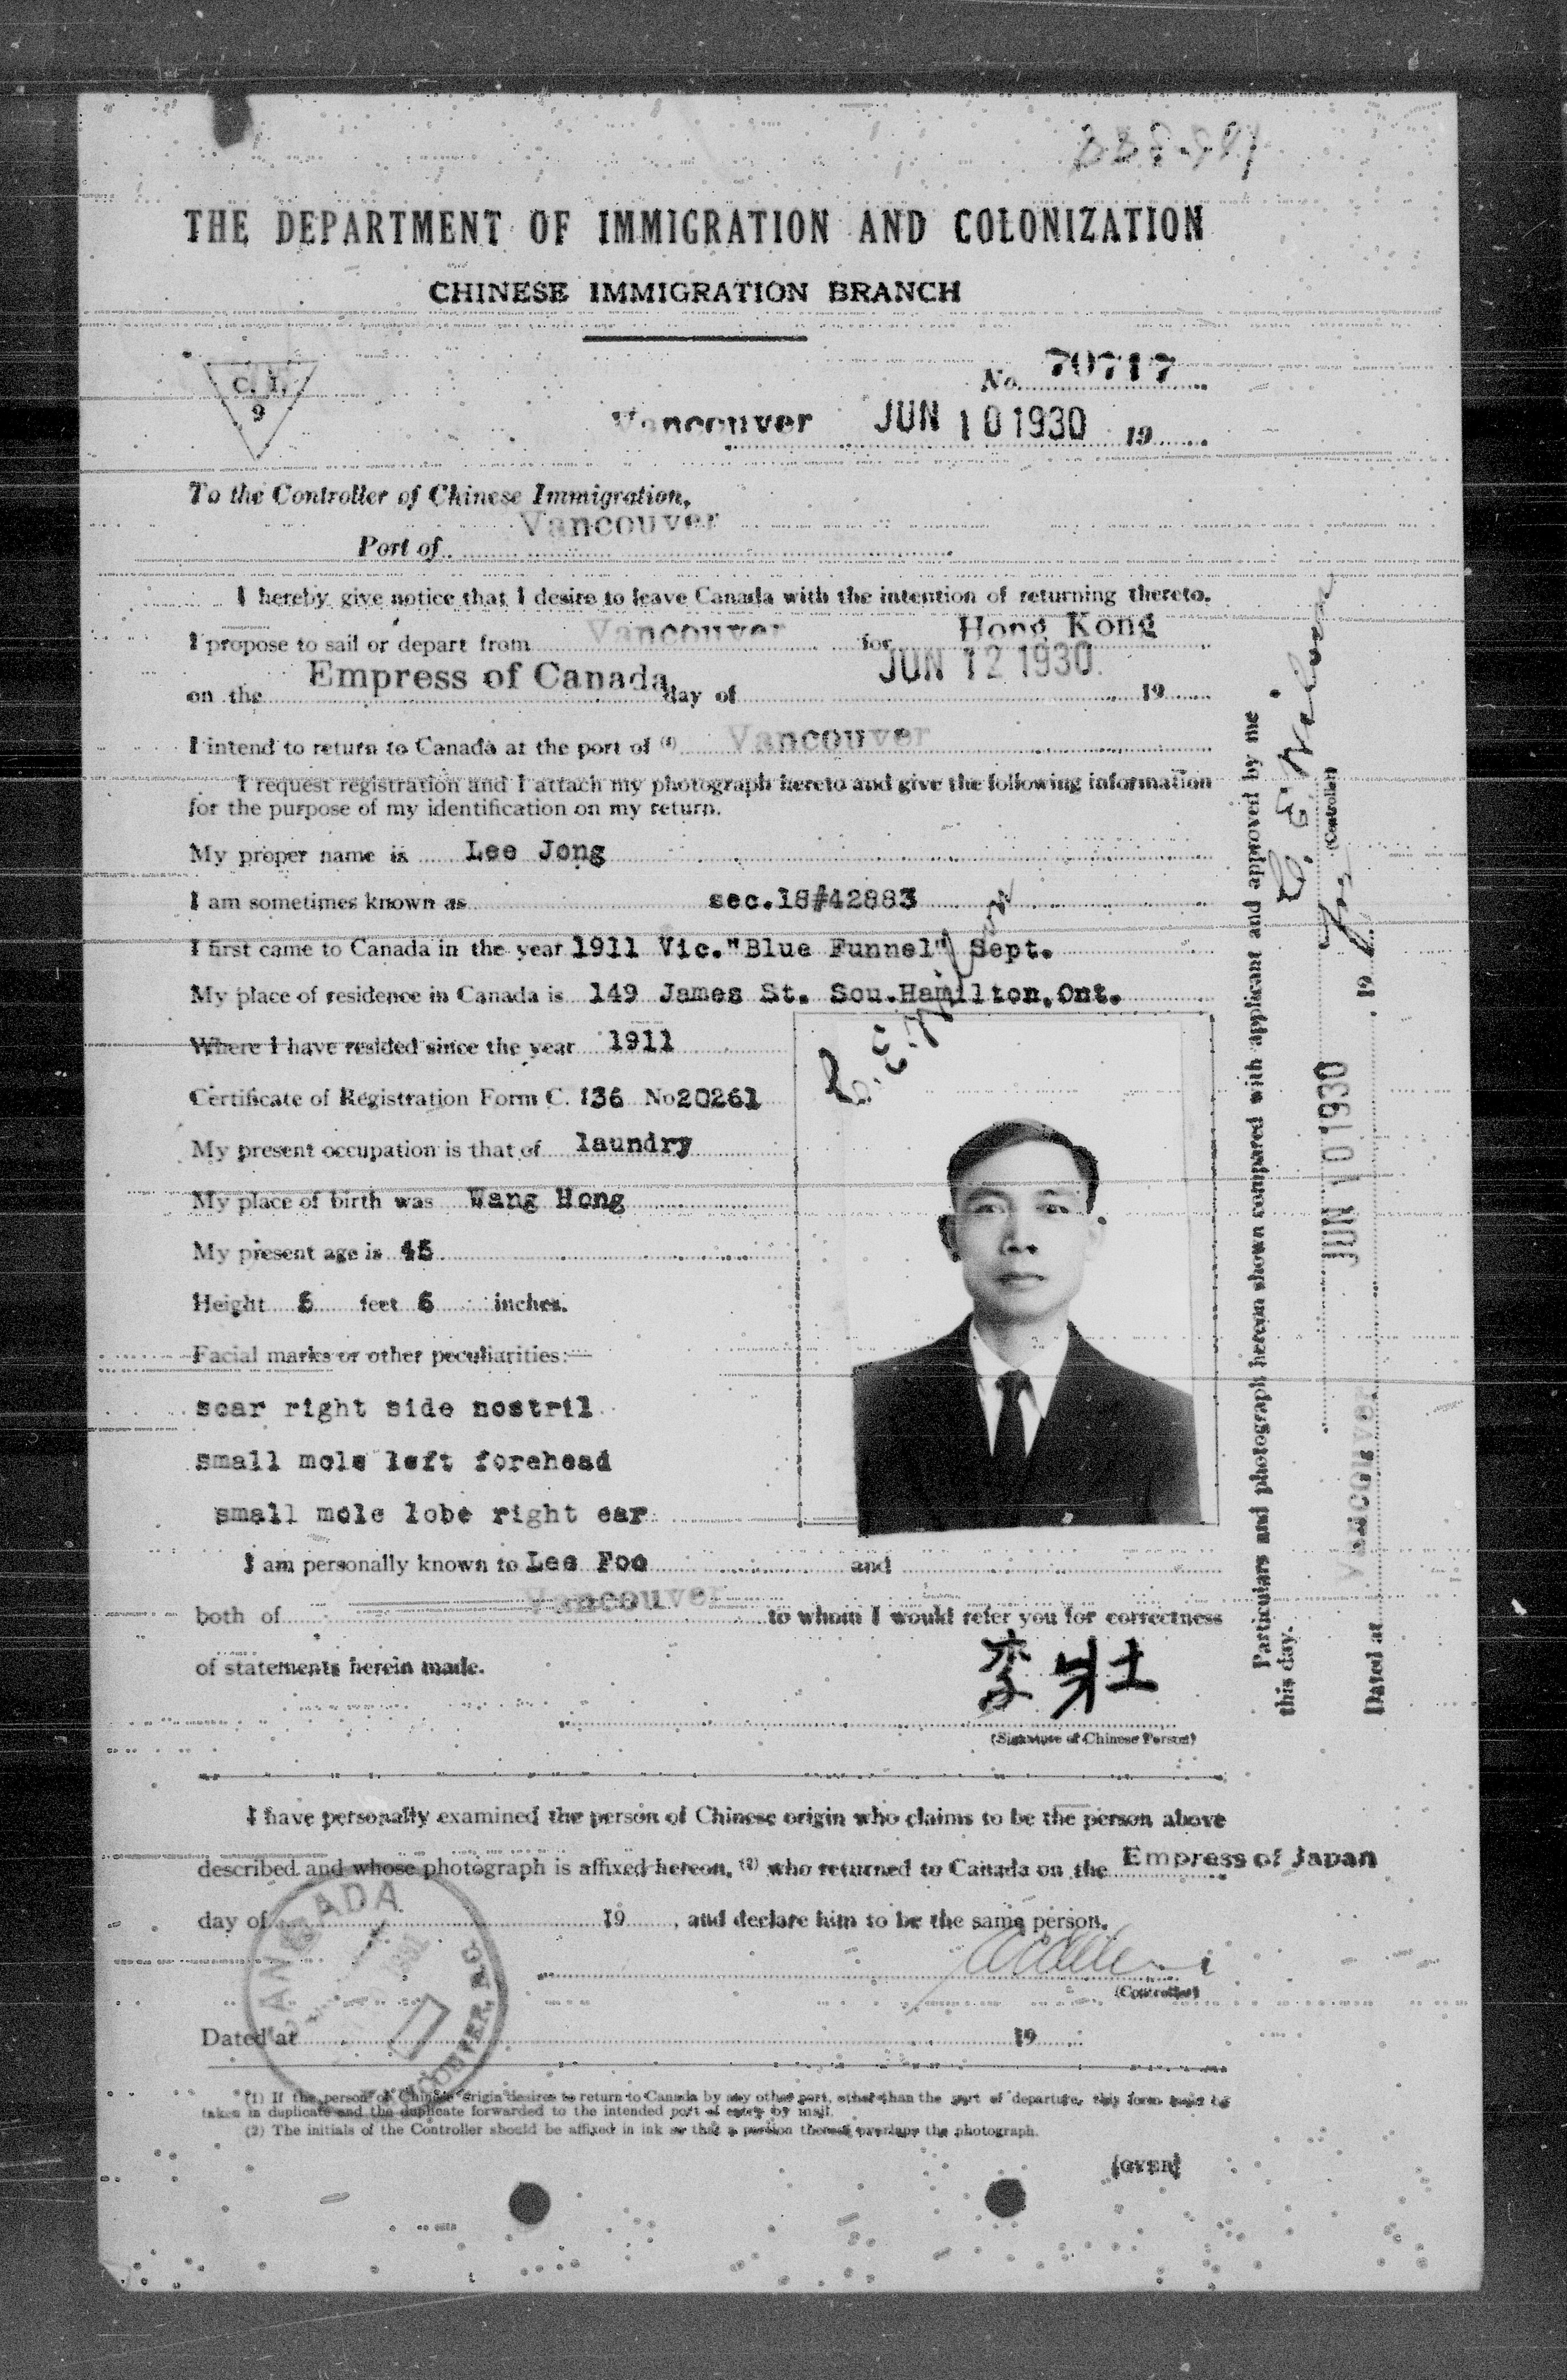 THE DEPARTMENT OF IMMIGRATION AND COLONIZATION
CHINESE IMMIGRATION BRANCH
C. I.
9
No. 70717
Vancouver JUN 10 1930 19
To the Controller of Chinese Immigration,
Vancouver
Port of
I hereby give notice that I desire to leave Canada with the intention of returning thereto.
I propose to sail or depart from Vancouver for Hong Kong
on the Empress of Canada day of JUN 12 1930. 19
I intend to return to Canada at the port of (1) Vancouver
I request registration and I attach my photograph hereto and give the following information
for the purpose of my identification on my return.
My proper name is Lee Jong
I am sometimes known as sec.18#42883
I first came to Canada in the year 1911 Vic."Blue Funnel" Sept.
My place of residence in Canada is 149 James St. Sou.Hamilton,Ont.
Where I have resided since the year 1911
Certificate of Registration Form C. I36 No 20261
My present occupation is that of laundry
My place of birth was Wang Hong
My present age is 45
Height 5 feet 6 inches.
Facial marks or other peculiarities:—
scar right side nostril
small mole left forehead
small mole lobe right ear
I am personally known to Lee Foo and
both of Vancouver to whom I would refer you for correctness
of statements herein made.
李壯
(Signature of Chinese Person)
I have personally examined the person of Chinese origin who claims to be the person above
described and whose photograph is affixed hereon, (2) who returned to Canada on the Empress of Japan
day of 19 , and declare him to be the same person.
(Controller)
Dated at 19
(1) If the person of Chinese origin desires to return to Canada by any other port, other than the port of departure, this form must be
taken in duplicate and the duplicate forwarded to the intended port of entry by mail.
(2) The initials of the Controller should be affixed in ink so that a portion thereof overlaps the photograph.
(OVER)
Particulars and photograph herein shown compared with applicant and approved by me
this day.
JUN 10 1930
(Controller)
Dated at Vancouver 19
CANADA
VANCOUVER, B.C.